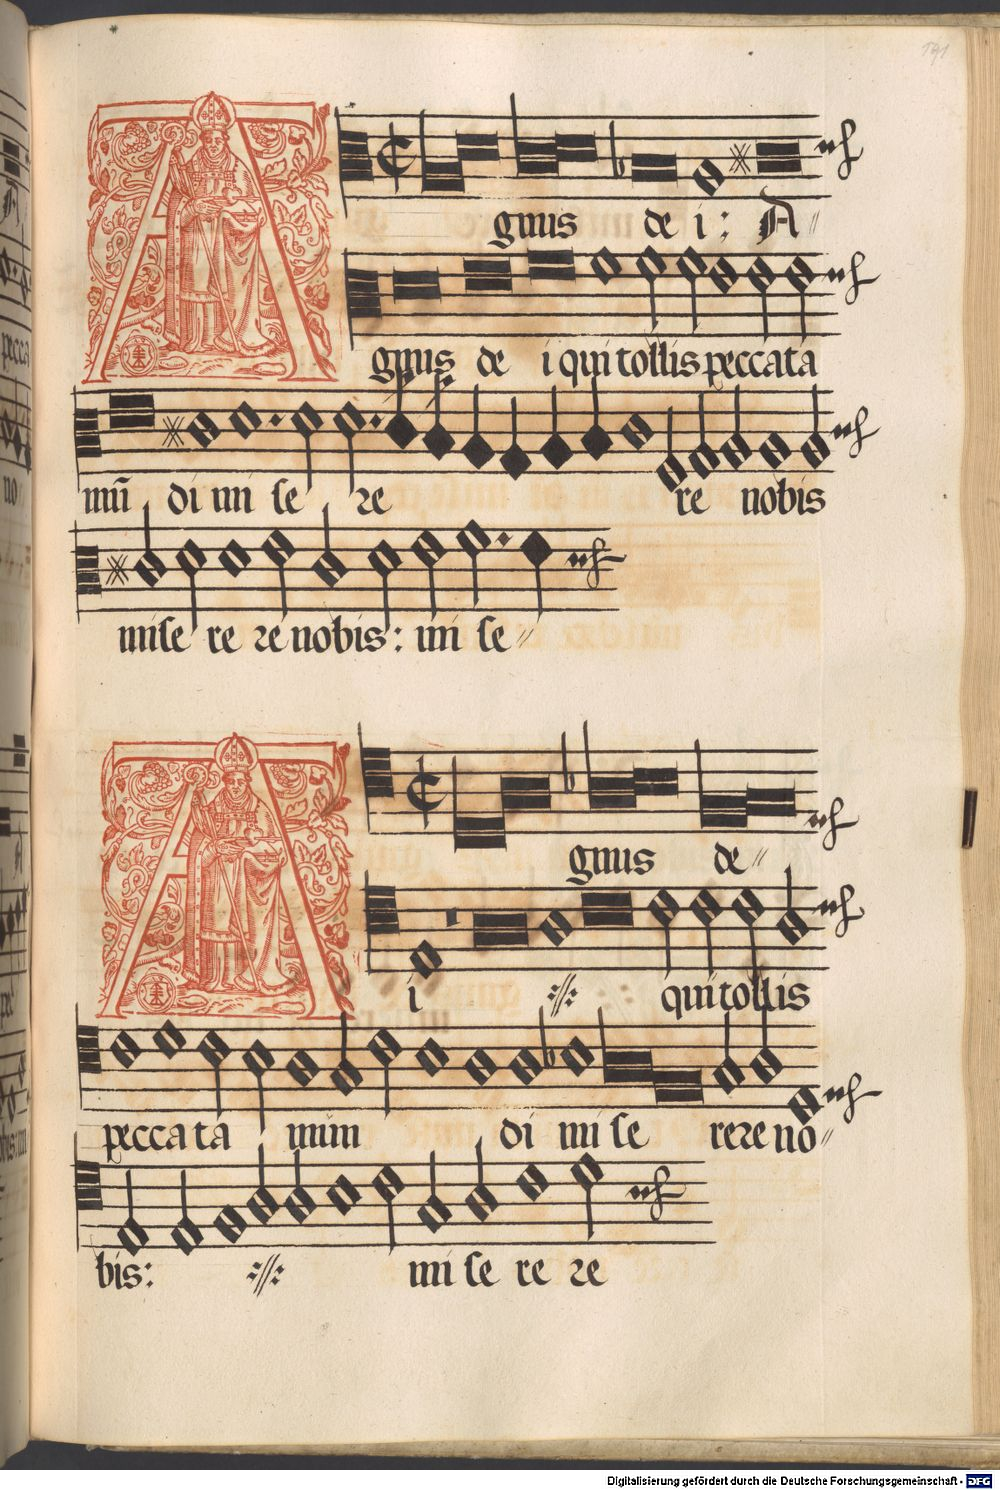 191
A gnus de i: A
gnus de i qui tollis peccata
mū di mi se re re nobis
mise re re nobis: mi se
A gnus de
i qui tollis
peccata mun di mi se rere no
bis: mi se re re
Digitalisierung gefördert durch die Deutsche Forschungsgemeinschaft - DFG